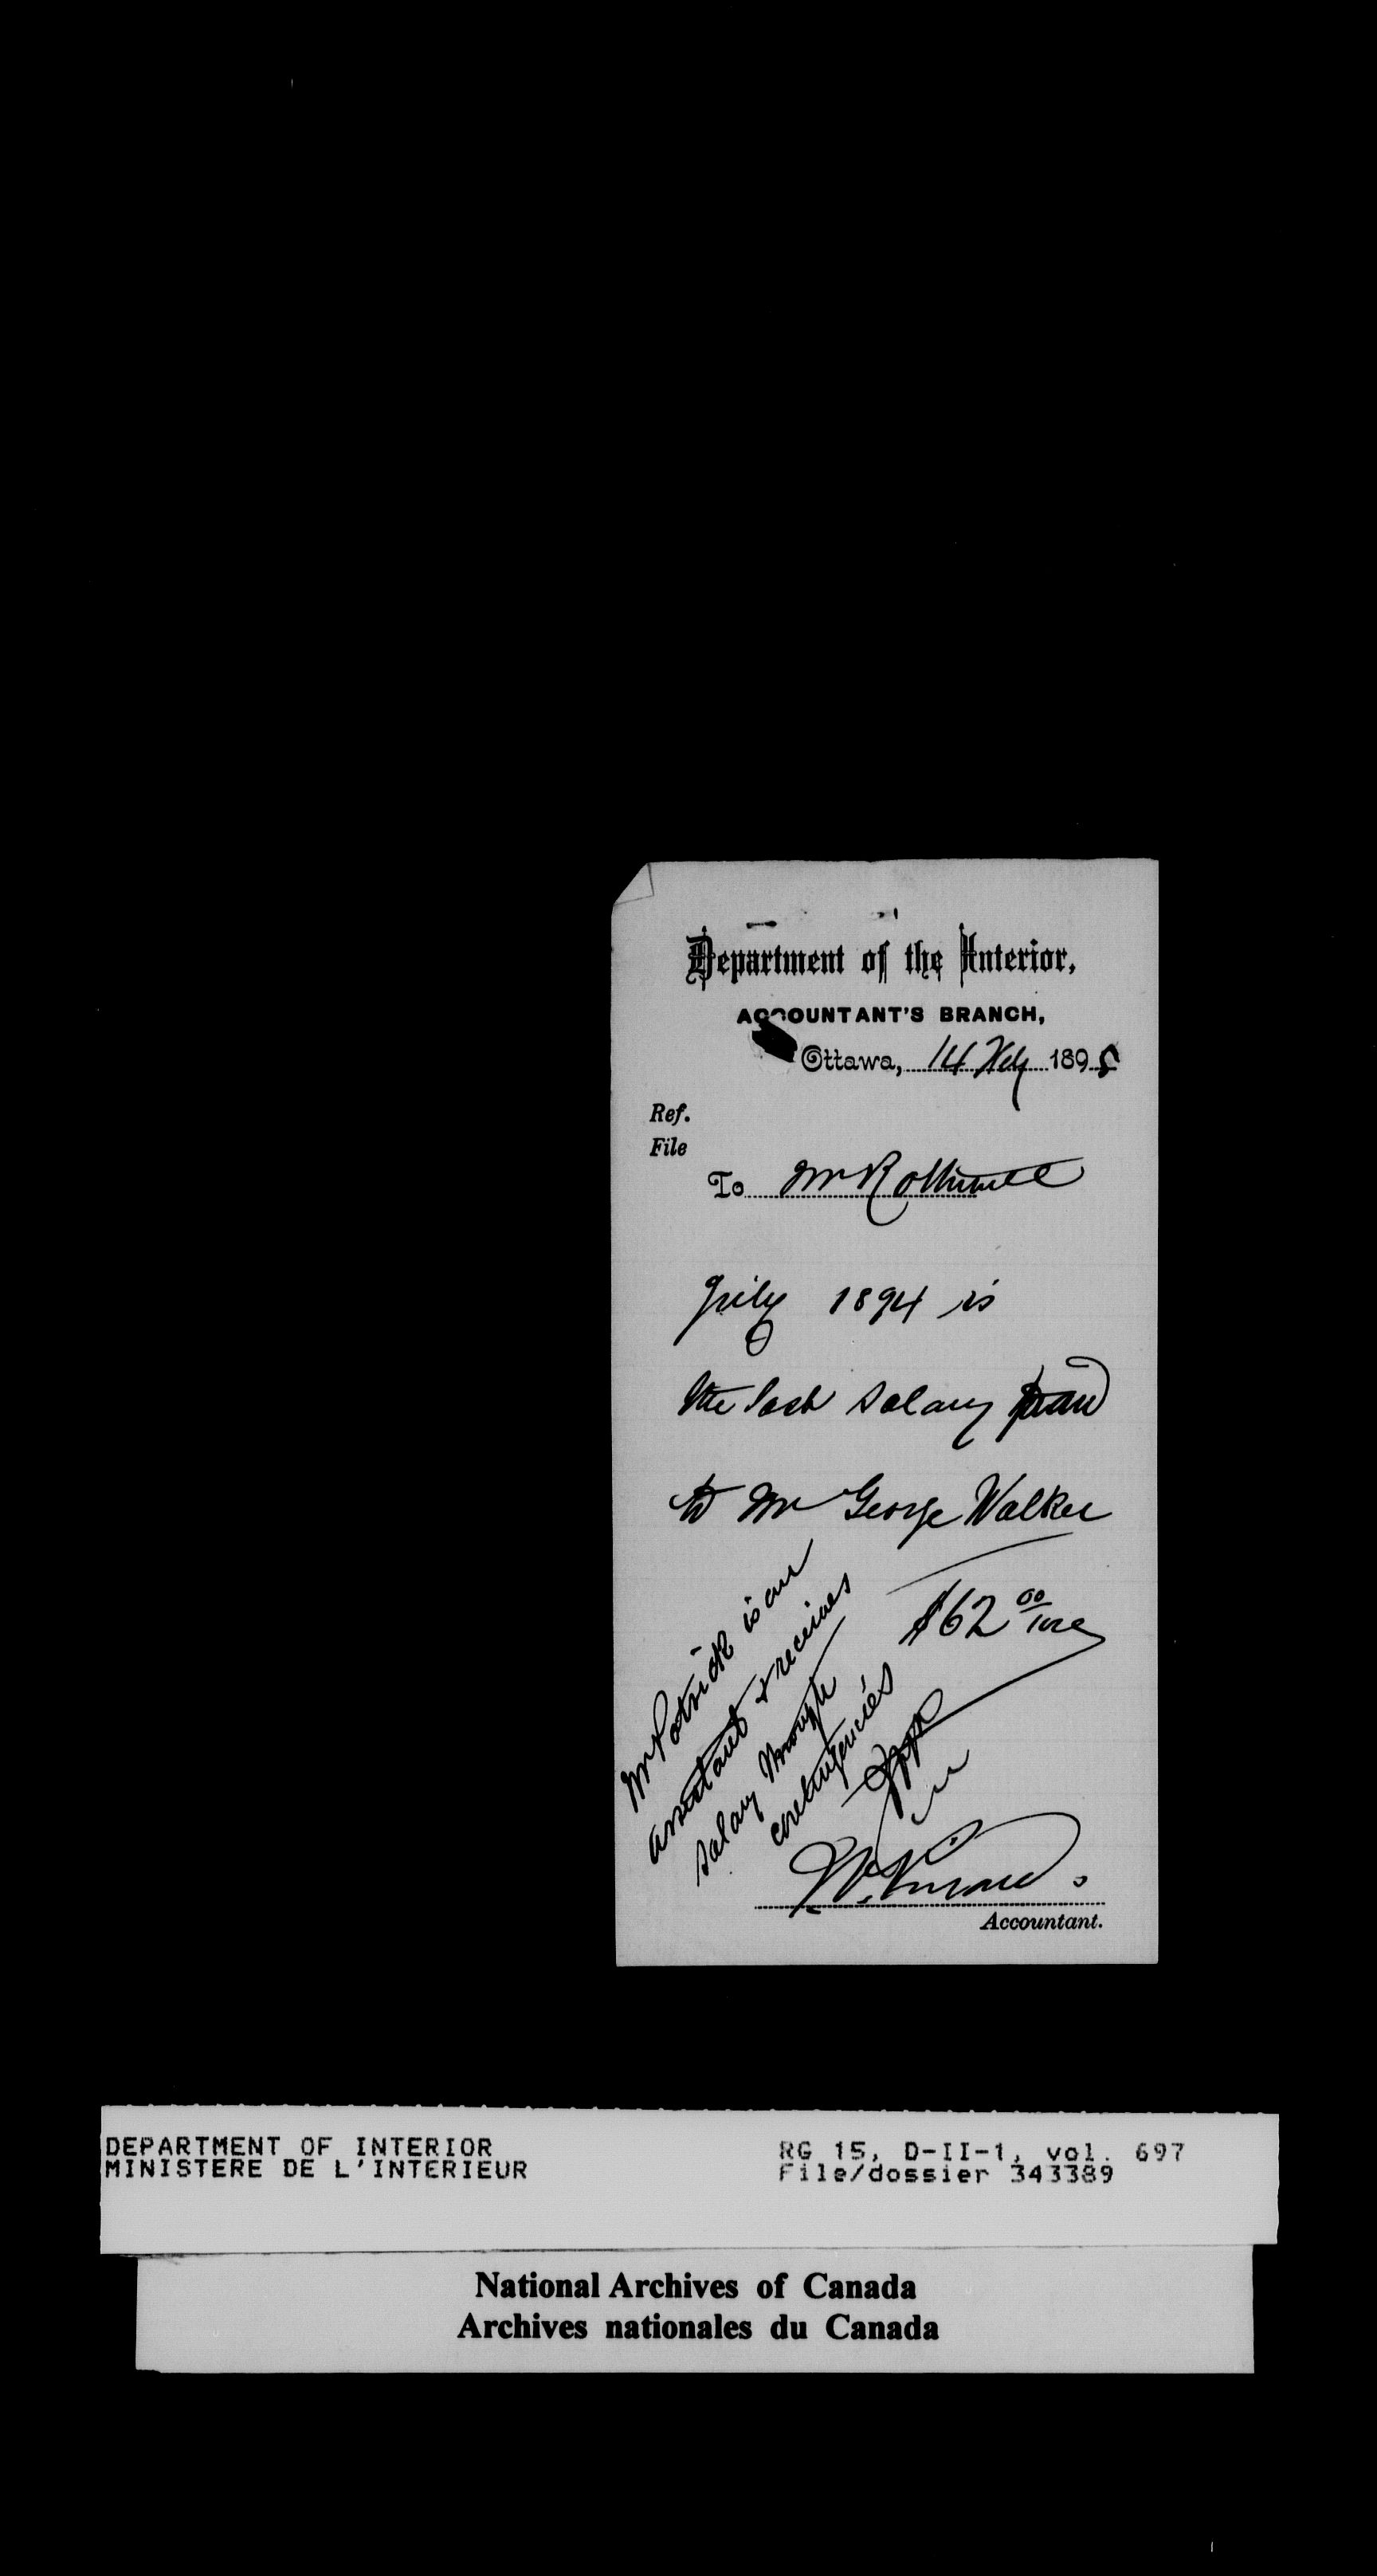 Department of the Interior,
ACCOUNTANT'S BRANCH,
Ottawa, 14 Feby 1895
Ref.
File
To Mr Rothwell
July 1894 is
the last salary paid
to Mr George Walker
$62 00/100
Mr Patrick is an
assistant & receives
salary through
contingencies
Accountant.
DEPARTMENT OF INTERIOR
MINISTERE DE L'INTERIEUR
RG 15, D-II-1, vol. 697
File/dossier 343389
National Archives of Canada
Archives nationales du Canada